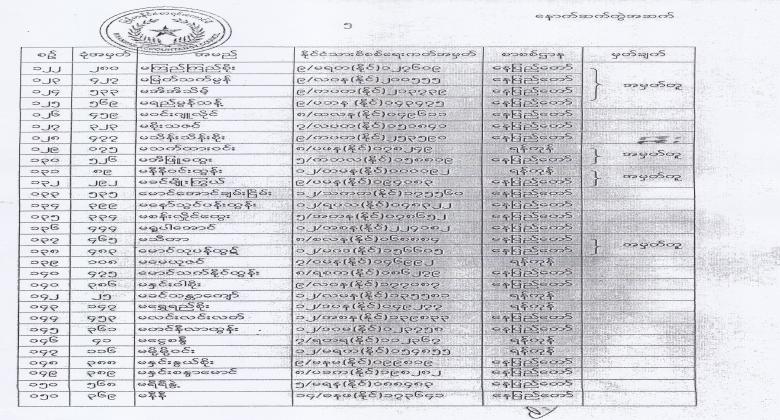 ၅
နောက်ဆက်တွဲအဆက်
စဉ် ခုံအမှတ် အမည် နိုင်ငံသားစိစစ်ရေးကတ်အမှတ် စာစစ်ဌာန မှတ်ချက်
၁၂၂ ၂၈၀ မကြည်ကြည်စိုး ၉/မရတ(နိုင်)၁၂၇၆၀၉ နေပြည်တော်
၁၂၃ ၄၂၇ မမြတ်သက်မွန် ၉/လဝန(နိုင်)၂၀၀၅၅၅ နေပြည်တော် အမှတ်တူ
၁၂၄ ၅၃၃ မအိအိသိမ့် ၉/တပတ(နိုင်)၂၁၃၃၃၉ နေပြည်တော်
၁၂၅ ၅၆၉ မရည်မွန်သန့် ၉/ပဘန(နိုင်)၀၄၃၄၇၅ နေပြည်တော်
၁၂၆ ၄၅၉ မဝင်းကျူလှိုင် ၈/တလန(နိုင်)၀၄၉၆၁၁ နေပြည်တော်
၁၂၇ ၃၂၃ မစိုးသဇင် ၇/လပတ(နိုင်)၁၅၁၈၄၁ နေပြည်တော်
၁၂၈ ၄၇၇ မသိန်းသိန်းစိုး ၉/တပတ(နိုင်)၂၅၃၅၉၀ နေပြည်တော်
၁၂၉ ၀၇၅ မလက်ထားဝင်း ၈/ပဖန(နိုင်)၀၇၈၂၄၉ ရန်ကုန်
၁၃၀ ၅၂၆ မအိဖြူထွေး ၅/ကဘလ(နိုင်)၁၅၈၈၀၉ နေပြည်တော် အမှတ်တူ
၁၃၁ ၈၉ မနီနီဝင်းထွန်း ၁၂/တမန(နိုင်)၁၀၀၀၉၂ ရန်ကုန်
၁၃၂ ၂၉၂ မခင်မျိုးကြွယ် ၉/ပမန(နိုင်)၁၉၃၀၈၃ နေပြည်တော် အမှတ်တူ
၁၃၃ ၅၃၅ မောင်အောင်ချမ်းငြိမ်း ၁၂/သဃက(နိုင်)၁၇၅၅၆၀ နေပြည်တော်
၁၃၄ ၃၉၉ မနော်သွင်ပန်းထွန်း ၁၂/ရပသ(နိုင်)၀၄၈၃၂၂ နေပြည်တော်
၁၃၅ ၃၃၄ မစန်းလှိုင်ထွေး ၅/အတန(နိုင်)၀၇၈၆၅၂ နေပြည်တော်
၁၃၆ ၄၄၄ မရွှပါအောင် ၁၂/အစန(နိုင်)၂၂၄၁၈၂ နေပြည်တော်
၁၃၇ ၄၆၅ မသီတာ ၈/စလန(နိုင်)၀၆၈၈၈၄ နေပြည်တော်
၁၃၈ ၄၈၃ မောင်လုပန်ထွဋ် ၁၂/မဂဒ(နိုင်)၁၅၆၆၀၅ နေပြည်တော် အမှတ်တူ
၁၃၉ ၁၀၈ မမေယုဇင် ၇/ဝမန(နိုင်)၀၄၆၉၉၂ ရန်ကုန်
၁၄၀ ၄၇၅ မောင်သက်နိုင်ထွန်း ၈/ရစက(နိုင်)၀၈၆၂၇၉ နေပြည်တော်
၁၄၁ ၃၈၆ မနှင်းဝါစိုး ၉/လဝန(နိုင်)၁၇၇၀၈၇ နေပြည်တော်
၁၄၂ ၂၅ မခင်သန္တာကျော် ၁၂/လမန(နိုင်)၁၃၅၅၈၁ ရန်ကုန်
၁၄၃ ၁၄၇ မရွှေရည်စိုး ၁၂/သလန(နိုင်)၀၄၉၂၇၇ ရန်ကုန်
၁၄၄ ၄၅၃ မလင်းလင်းလတ် ၁၂/အစန(နိုင်)၁၃၉၈၃၃ နေပြည်တော်
၁၄၅ ၃၆၁ မတင်နီလာထွန်း ၁၂/ဒဂမ(နိုင်)၀၂၃၇၅၈ နေပြည်တော်
၁၄၆ ၄၁ မငွေစန္ဒီ ၇/ရတရ(နိုင်)၁၁၂၃၆၇ ရန်ကုန်
၁၄၇ ၁၁၆ မဖြိုးဖြိုးဝင်း ၁၂/မရတ(နိုင်)၁၅၄၈၅၅ ရန်ကုန်
၁၄၈ ၃၈၈ မနှင်းနွယ်စိုး ၉/မနမ(နိုင်)၁၉၉၈၁၉ နေပြည်တော်
၁၄၉ ၃၈၉ မနှင်းစန္ဒာမောင် ၈/ပခက(နိုင်)၁၉၈၂၈၂ နေပြည်တော်
၁၅၀ ၅၆၈ မရီရီနွဲ့ ၅/မရန(နိုင်)၀၈၈၄၈၃ နေပြည်တော်
၁၅၁ ၃၆၉ မနီနီ ၁၄/ဓနဖ(နိုင်)၁၇၃၆၄၁ နေပြည်တော်